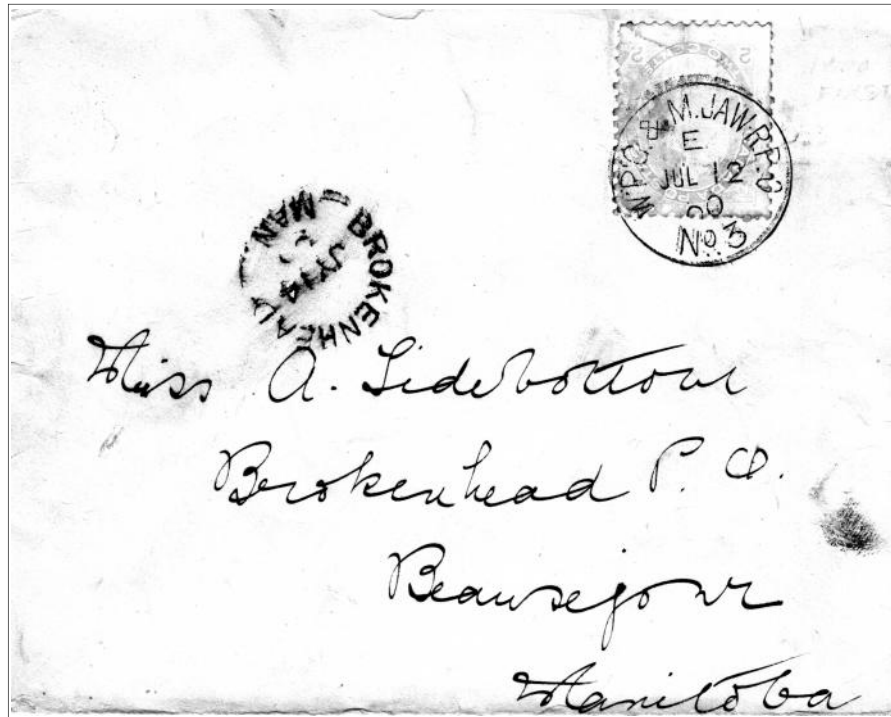 W.P.G. & M.JAW.R.P.O
E
JUL 12
00
No 3
BROKENHEAD
MAN
JY 14
Miss A. Sidebottom
Brokenhead P. O.
Beausejour
Manitoba